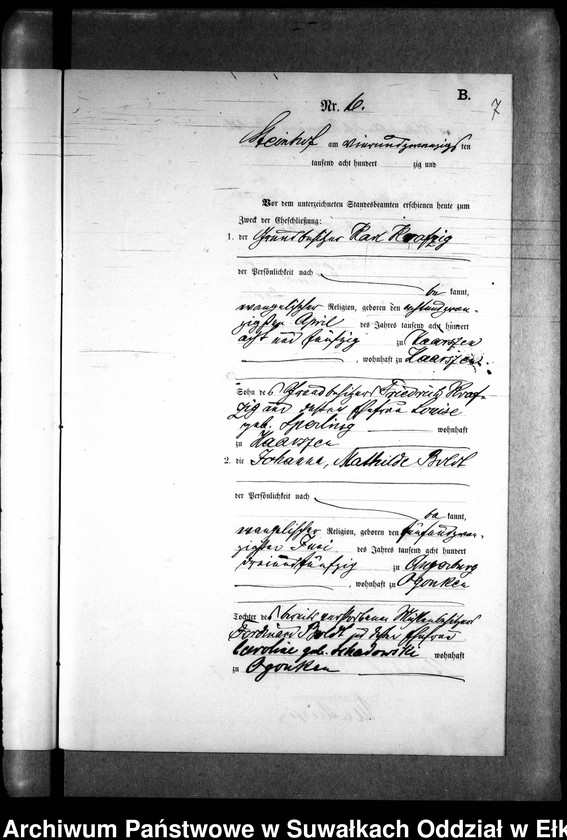 B.
7
Nr. 6.
Steinhof am vierundzwanzigs ten
tausend acht hundert zig und
Vor dem unterzeichneten Standesbeamten erschienen heute zum
Zweck der Eheschließung:
1. der Grundbesitzer Karl Krafzig
der Persönlichkeit nach
be kannt,
evangelischer Religion, geboren den achtundzwan-
zigsten April des Jahres tausend acht hundert
acht und fünfzig zu Haarszen
, wohnhaft zu Haarszen
Sohn des Grundbesitzers Friedrich Kraf-
zig und dessen Ehefrau Louise
geb. Sperling wohnhaft
zu Haarszen
2. die Johanna, Mathilde Boldt
der Persönlichkeit nach
be kannt,
evangelischer Religion, geboren den fünfundzwan-
zigsten des Jahres tausend acht hundert
dreiundfünfzig zu Angerburg
, wohnhaft zu Ogonken
Tochter des bereits verstorbenen Mühlenbesitzers
Ferdinand Boldt und dessen Ehefrau
Caroline geb. Schadowski wohnhaft
zu Ogonken
Archiwum Państwowe w Suwałkach Oddział w Ełk